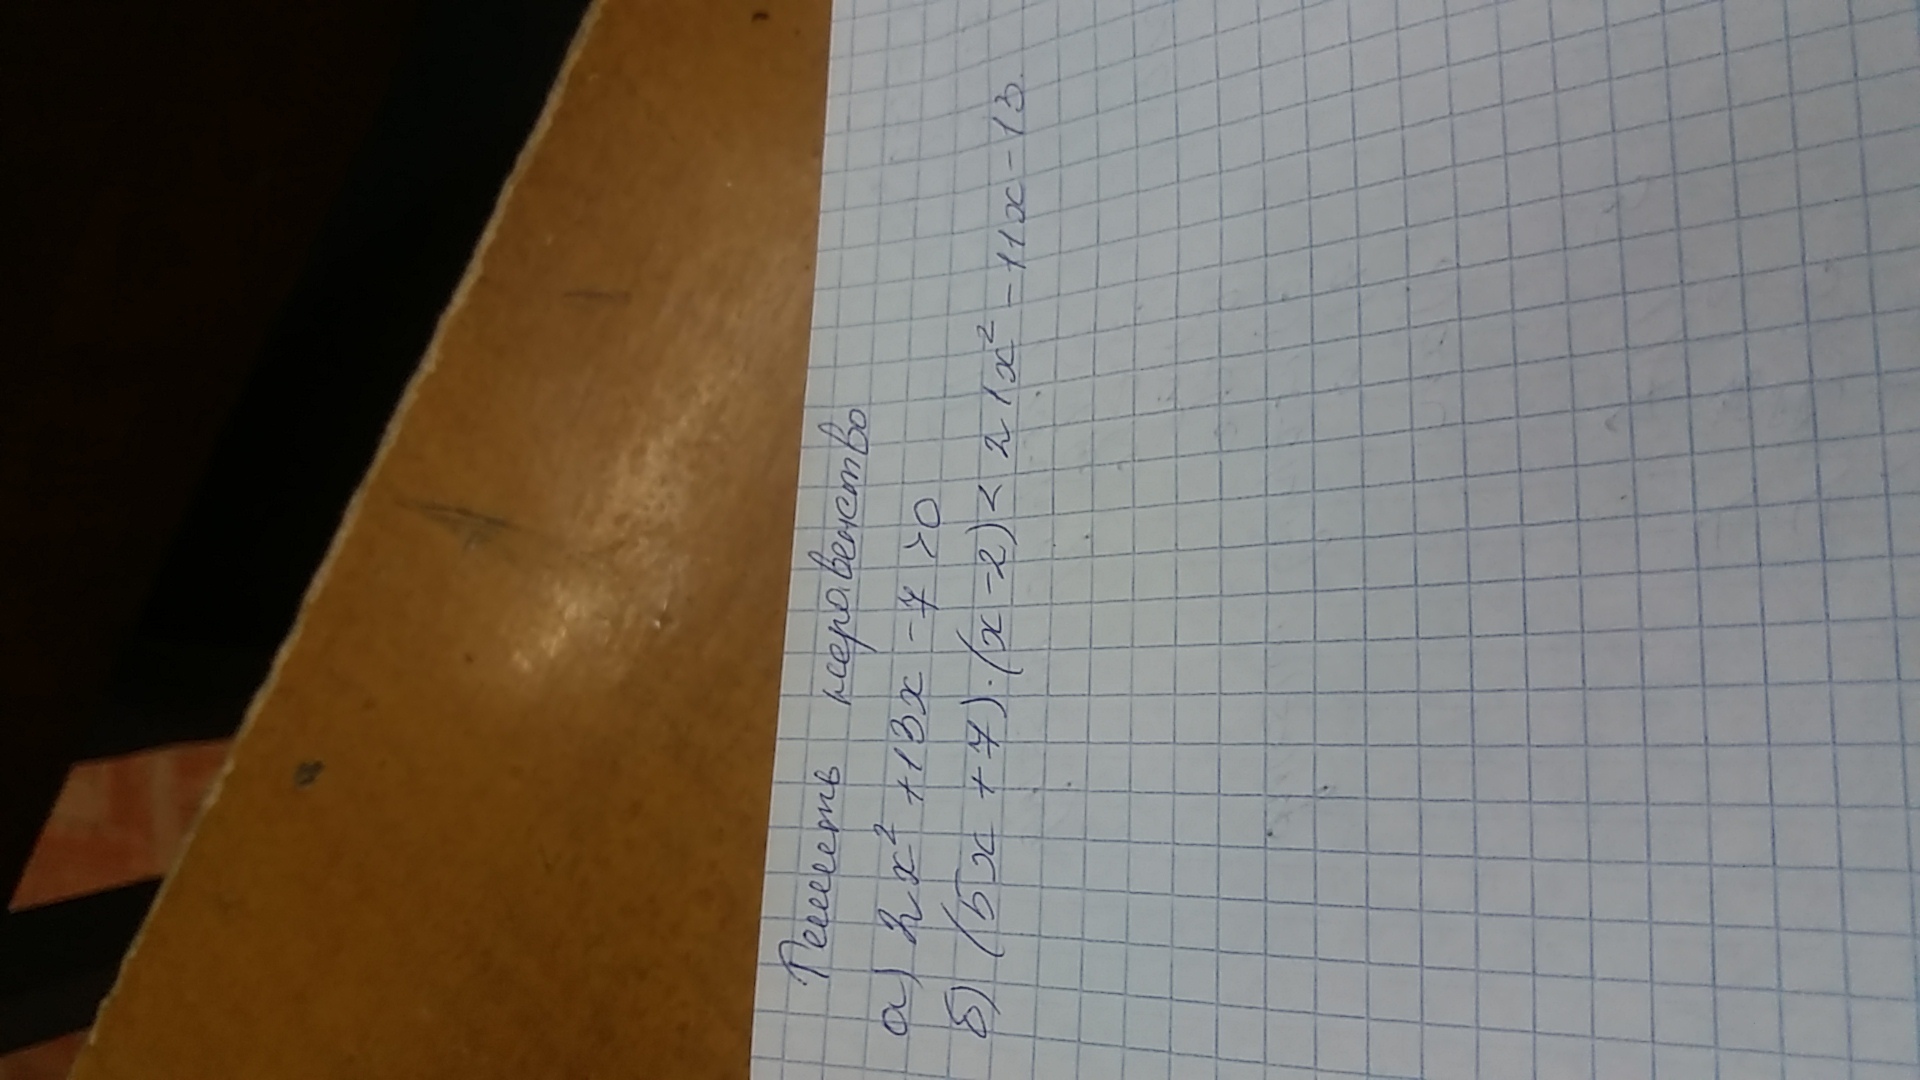 Решить неравенство
а) 2x² + 13x - 7 > 0
б) (5x + 7)·(x - 2) < 21x² - 11x - 13.